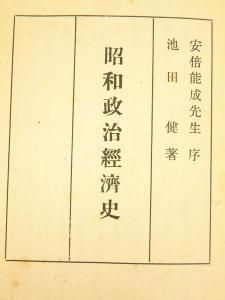 安倍能成先生 序
池田健 著
昭和政治經濟史